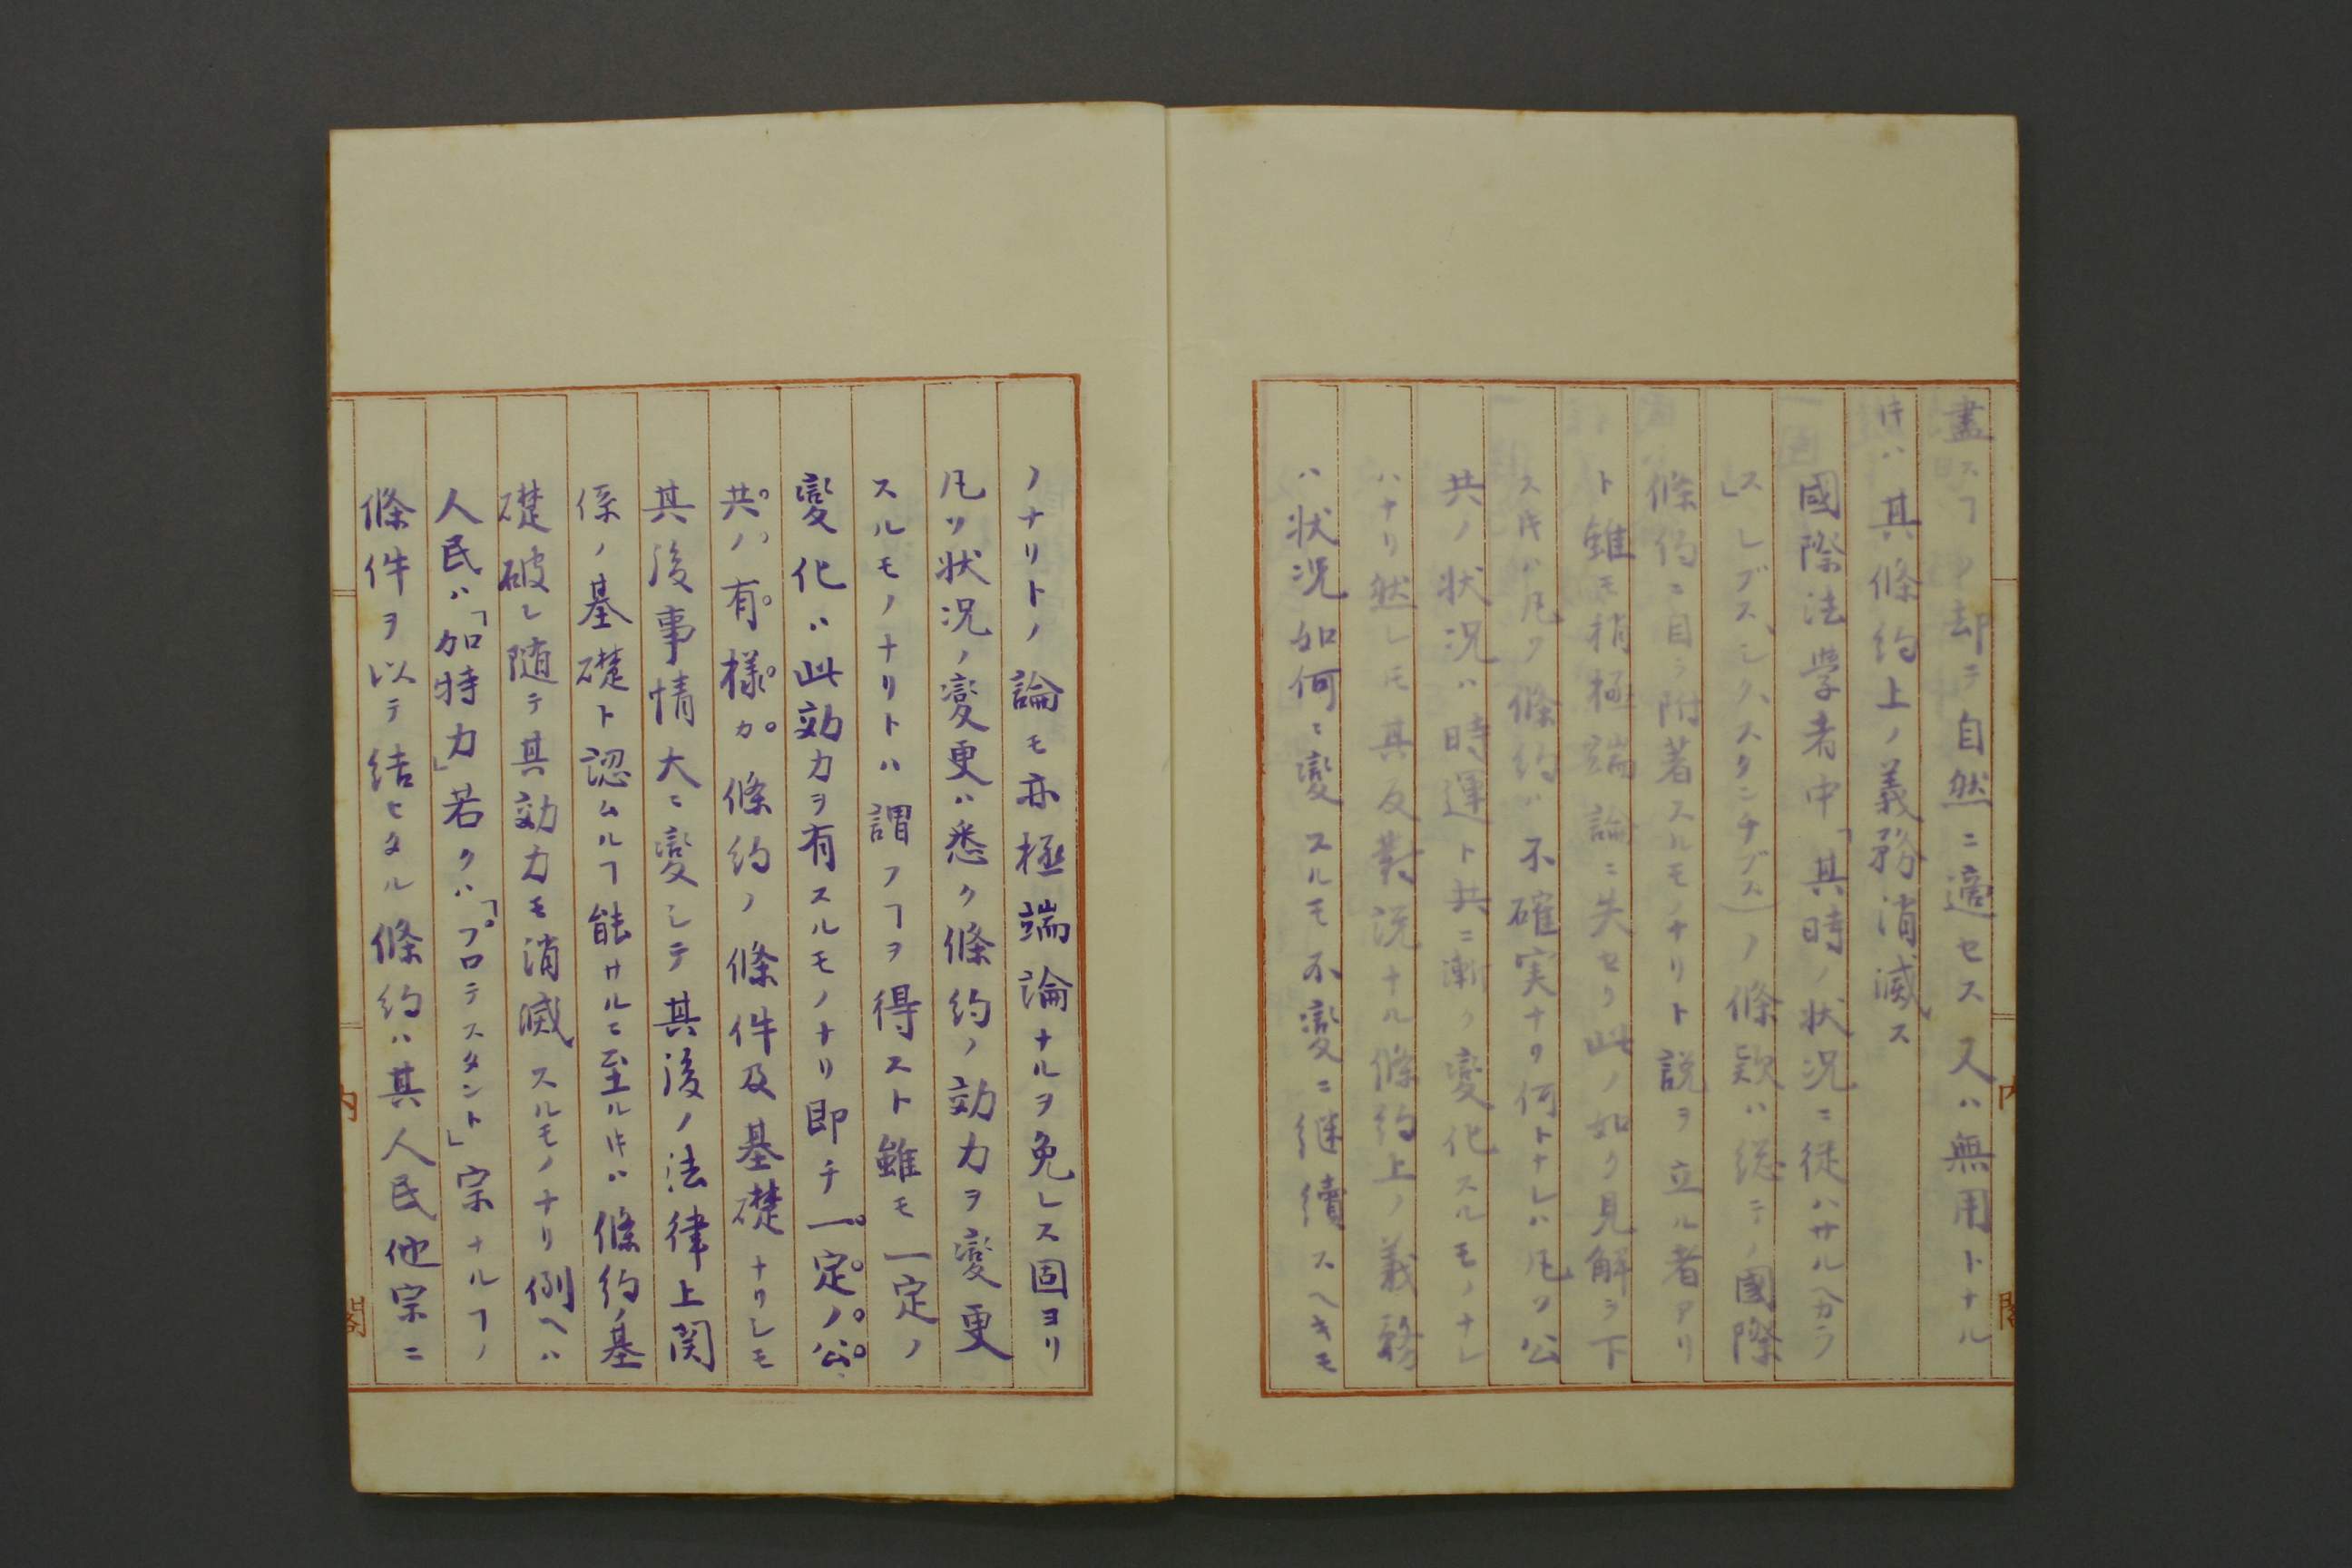 盡スヿ却テ自然ニ適セス又ハ無用トナル
ㇳキハ其條約上ノ義務消滅ス
國際法学者中「其時ノ状況ニ従ハサルヘカラ
ス」(レブス、シク、スタンチブス)ノ條欵ハ総テノ國際
條約ニ自ラ附著スルモノナリト説ヲ立ル者アリ
ト雖モ稍極端論ニ失セリ此ノ如ク見解ヲ下
スㇳキハ凡ソ條約ハ不確実ナリ何トナレハ凡ソ公
共ノ状況ハ時運ト共ニ漸ク変化スルモノナレ
ハナリ然レㇳモ其反對説ナル條約上ノ義務
ハ状況如何ニ變スルモ不變ニ継續スヘキモ
ノナリトノ論モ亦極端論ナルヲ免レス固ヨリ
凡ソ状況ノ變更ハ悉ク條約ノ効力ヲ變更
スルモノナリトハ謂フヿヲ得スト雖モ一定ノ
變化ハ此効力ヲ有スルモノナリ即チ一定ノ公
共ノ有樣カ條約ノ條件及基礎ナリシモ
其後事情大ニ變シテ其後ノ法律上関
係ノ基礎ト認ムルヿ能サルニ至ルㇳキハ條約ノ基
礎破レ随テ其効力モ消滅スルモノナリ例ヘハ
人民ハ「加特力」若クハ「プロテスタント」宗ナルヿノ
條件ヲ以テ結セタル條約ハ其人民他宗ニ
内閣